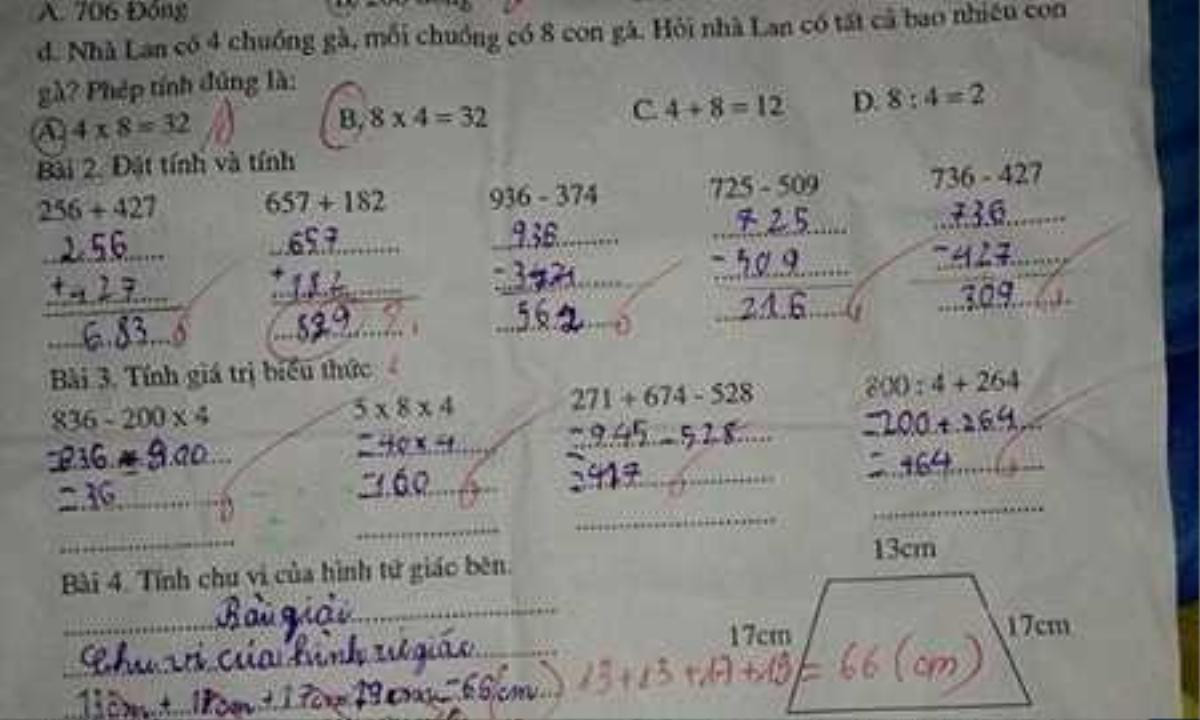 A. 706 Đồng
d. Nhà Lan có 4 chuồng gà, mỗi chuồng có 8 con gà. Hỏi nhà Lan có tất cả bao nhiêu con
gà? Phép tính đúng là:
A. 4 x 8 = 32 B. 8 x 4 = 32 C. 4 + 8 = 12 D. 8 : 4 = 2
Bài 2. Đặt tính và tính
256 + 427 657 + 182 936 - 374 725 - 509 736 - 427
256 657 936 725 736
+427 +182 -374 -509 -427
683 829 562 216 309
Bài 3. Tính giá trị biểu thức
836 - 200 x 4 5 x 8 x 4 271 + 674 - 528 800 : 4 + 264
=836 - 800 =40 x 4 =945 - 528 =200 + 264
=36 =160 =417 =464
13cm
Bài 4. Tính chu vi của hình tứ giác bên.
Bài giải
17cm 17cm
Chu vi của hình tứ giác
= 66 (cm)